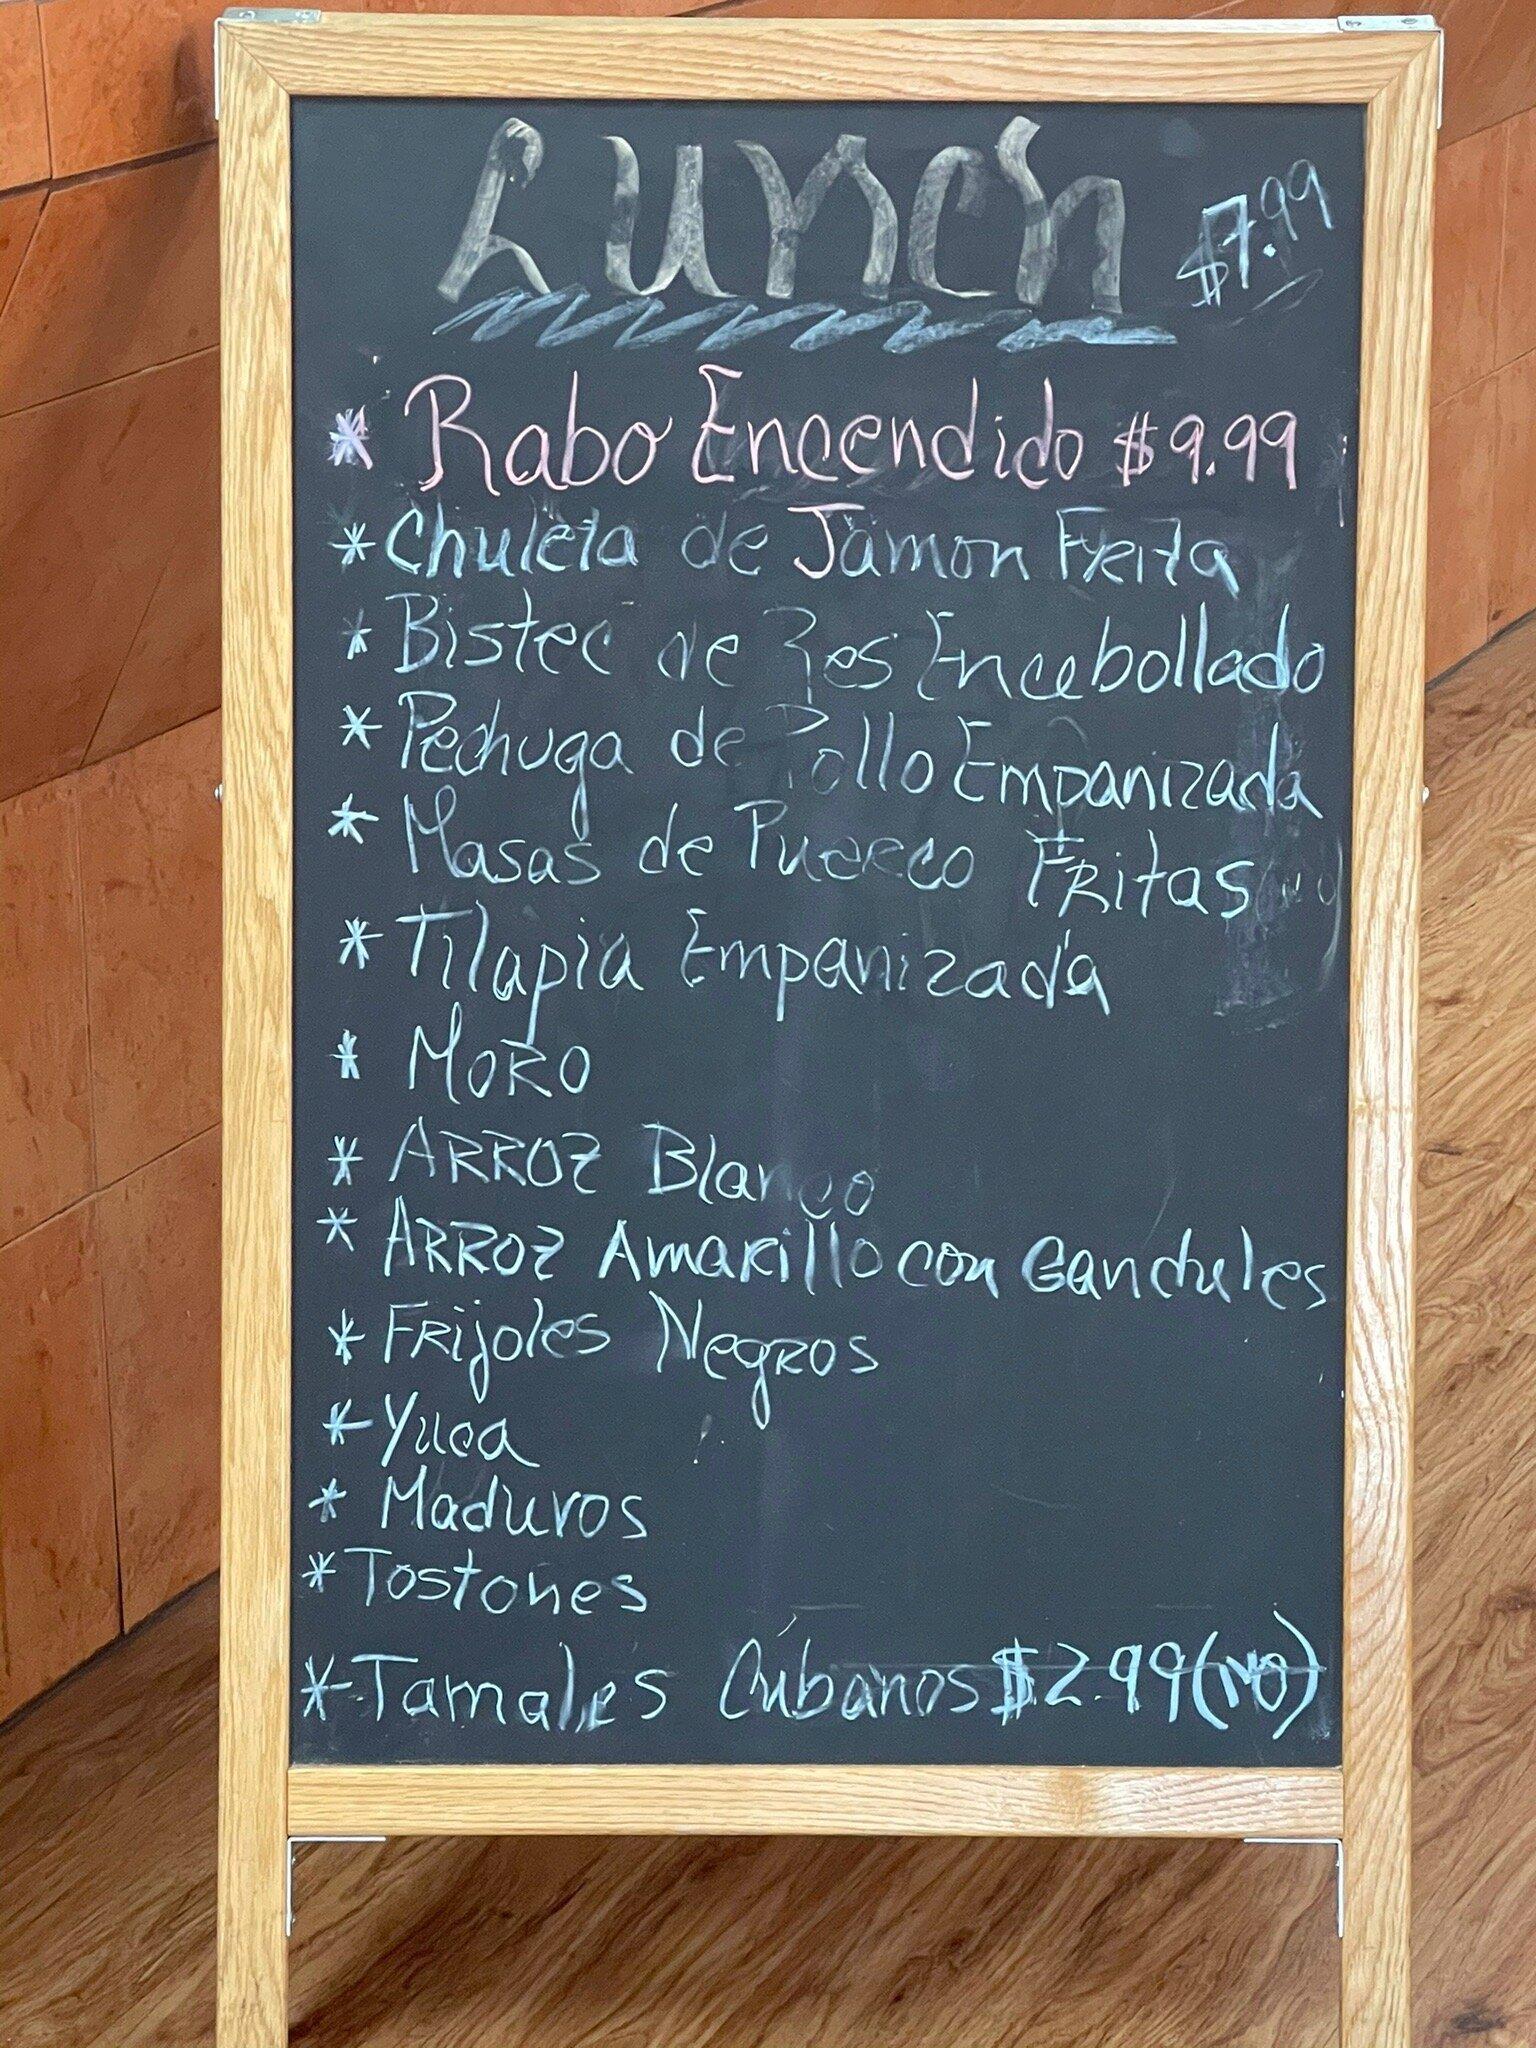 Lunch $7.99
* Rabo Encendido $9.99
* Chuleta de Jamon Freita
* Bistec de Res Encebollado
* Pechuga de Pollo Empanizada
* Masas de Puerco Fritas
* Tilapia Empanizada
* MORO
* ARROZ Blanco
* ARROZ Amarillo con Gandules
* Frijoles Negros
* Yuca
* Maduros
* Tostones
* Tamales Cubanos $2.99 (NO)